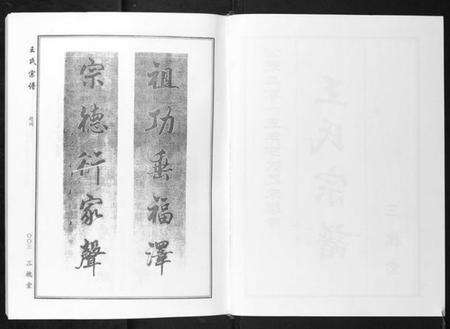 祖功垂福澤
宗德衍家聲
王氏宗譜
三槐堂
王氏宗譜